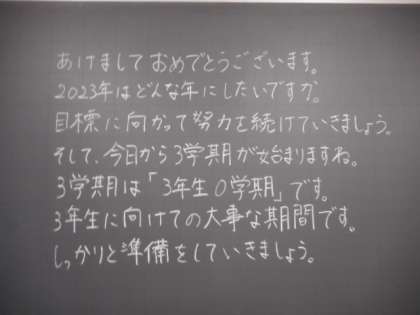 あけましておめでとうございます。
2023年はどんな年にしたいですか。
目標に向かって努力を続けていきましょう。
そして、今日から3学期が始まりますね。
3学期は「3年生0学期」です。
3年生に向けての大事な期間です。
しっかりと準備をしていきましょう。